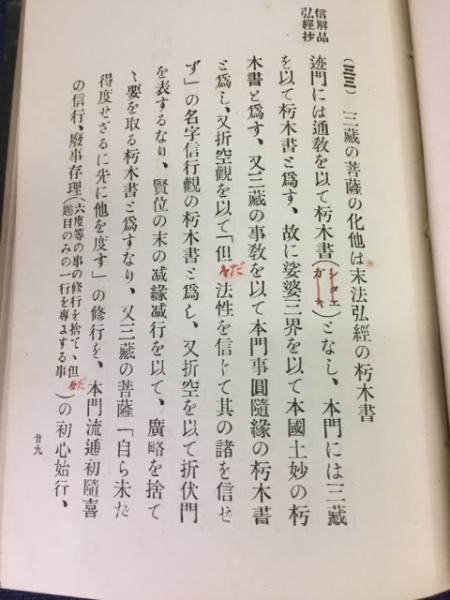 信解品
弘經抄
(三三) 三藏の菩薩の化他は末法弘經の朽木書
迹門には通敎を以て朽木書(シタエガキ)となし、本門には三藏
を以て朽木書と爲す、故に娑婆三界を以て本國土妙の朽
木書と爲す、又三藏の事敎を以て本門事圓隨緣の朽木書
と爲し、又折空觀を以て「但だ法性を信じて其の諸を信ぜ
ず」の名字信行觀の朽木書と爲し、又折空を以て折伏門
を表するなり、賢位の末の减緣减行を以て、廣略を捨て
ゝ要を取る朽木書と爲すなり、又三藏の菩薩「自ら未だ
得度せざるに先に他を度す」の修行を、本門流通初隨喜
の信行、廢事存理(六度等の事の修行を捨てゝ但だ題目のみの一行を專まする事)の初心始行、
廿九